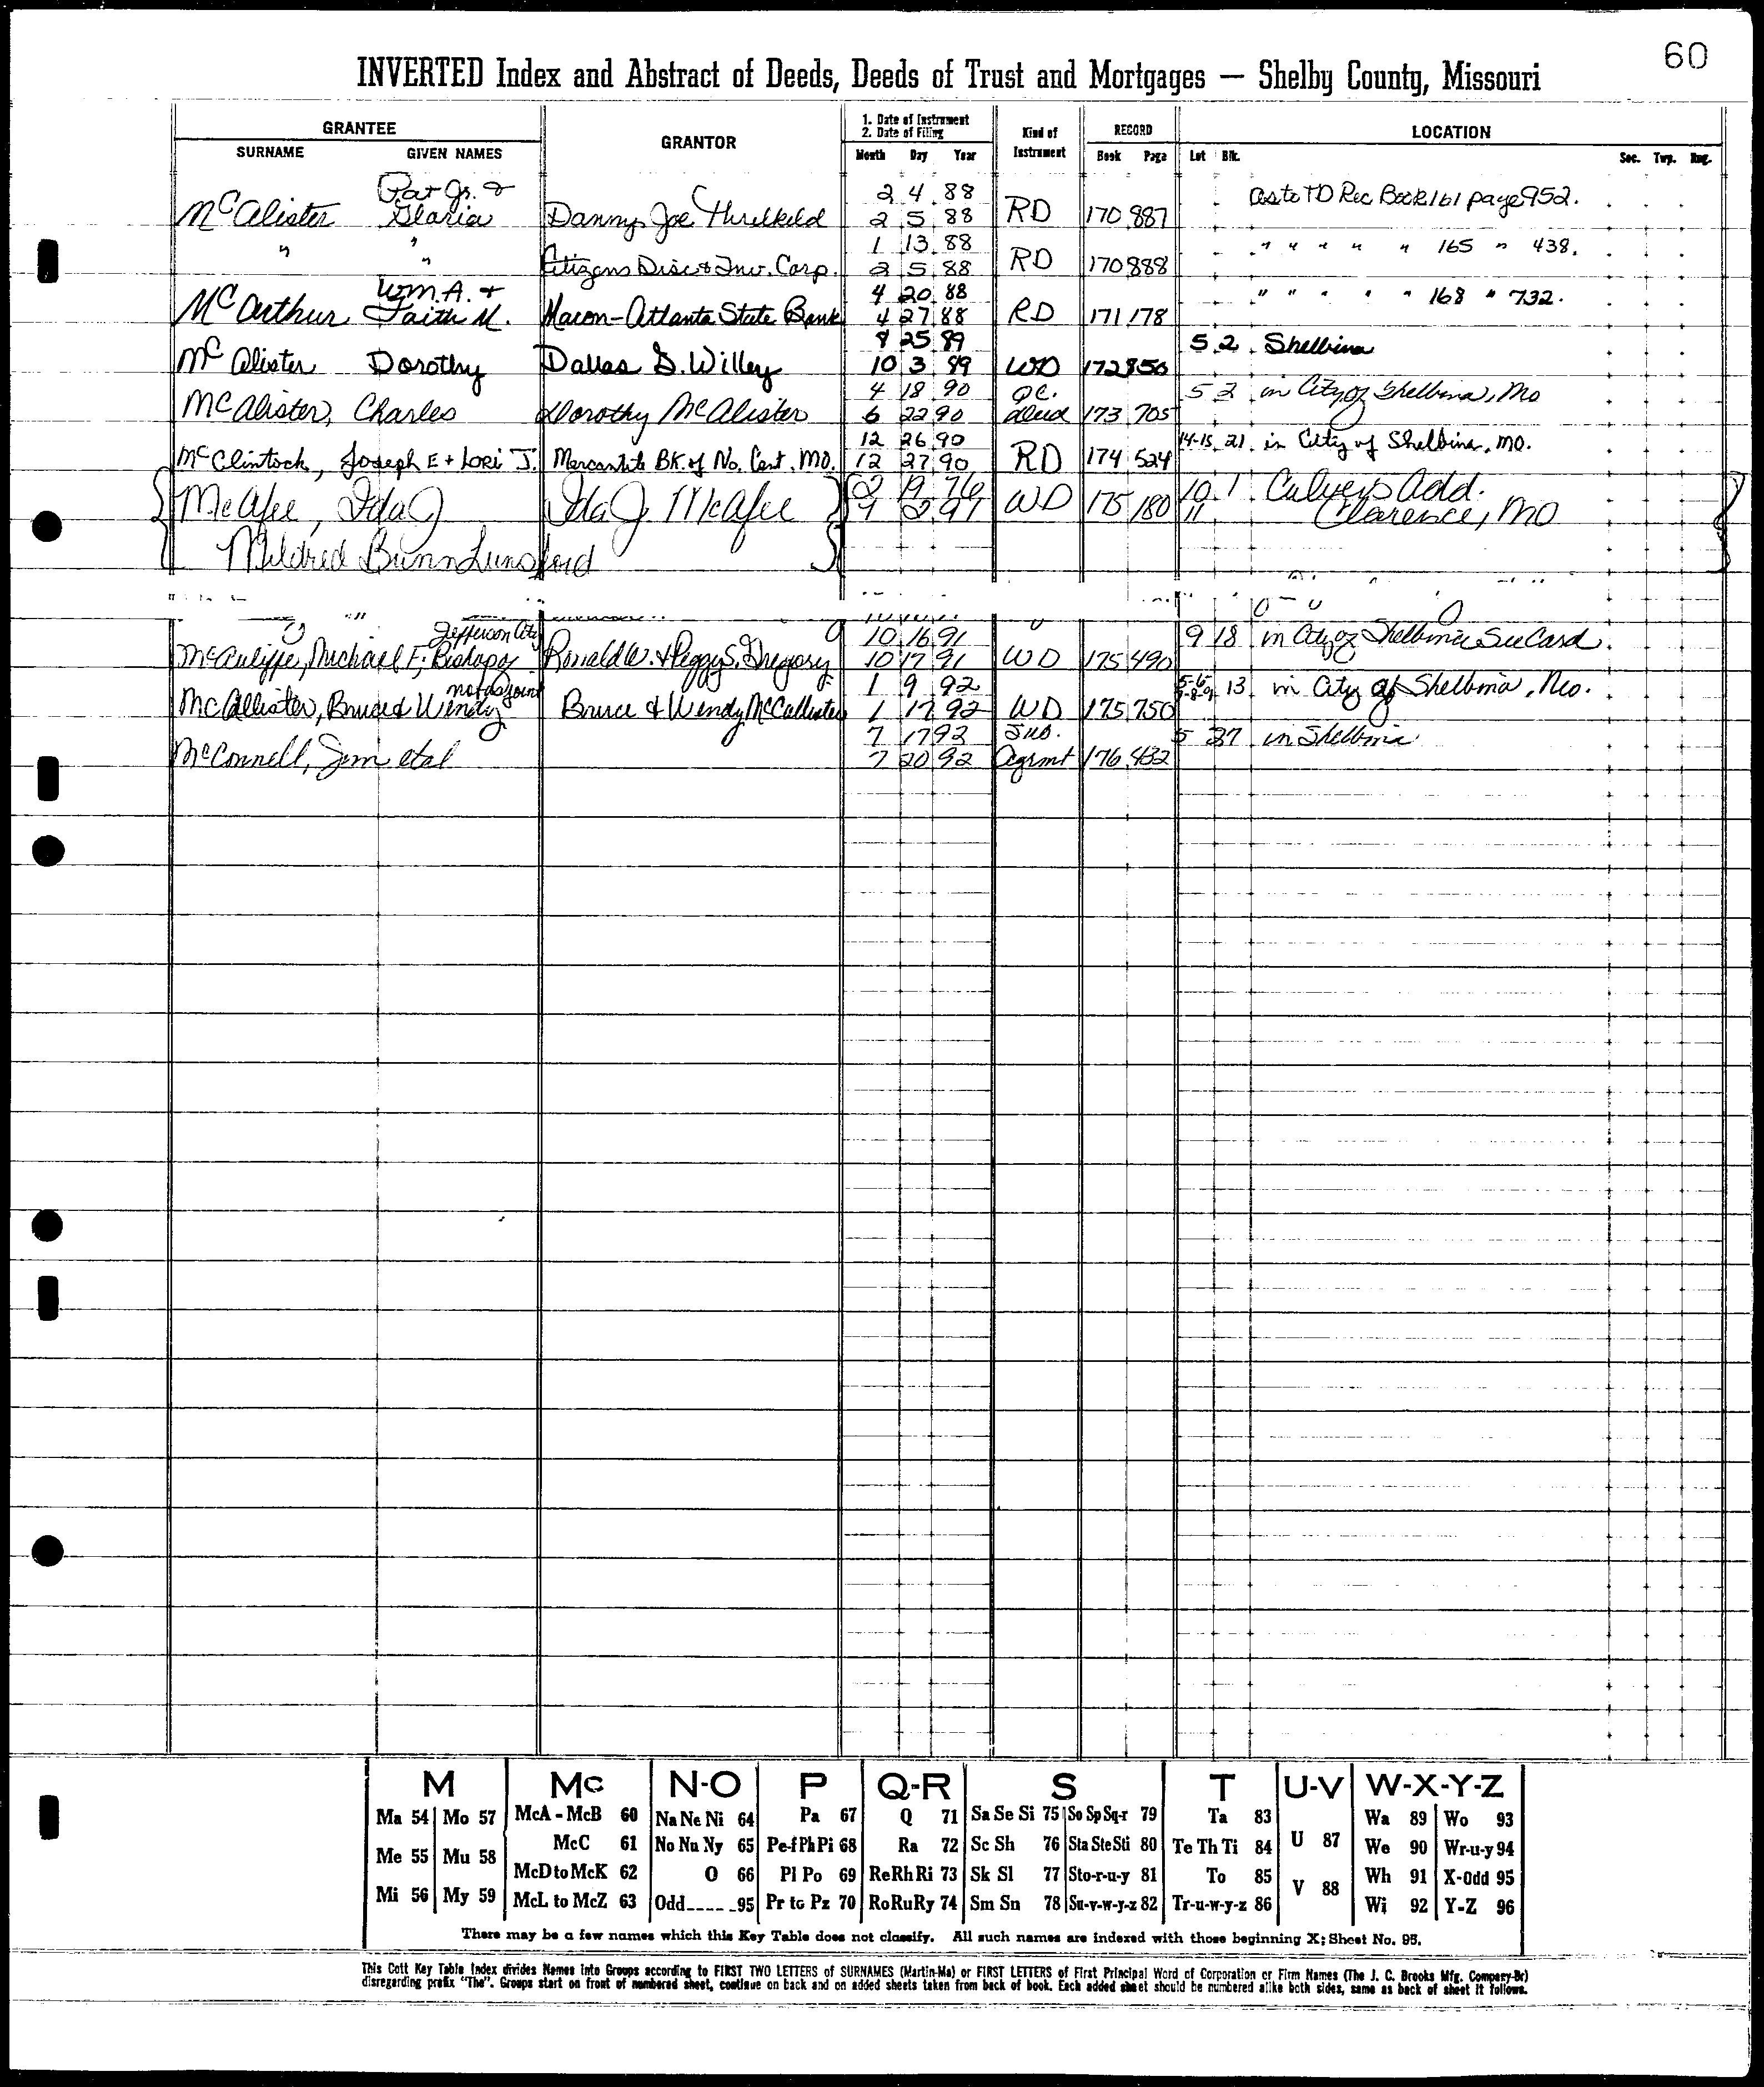 60
INVERTED Index and Abstract of Deeds, Deeds of Trust and Mortgages — Shelby County, Missouri
GRANTEE
SURNAME GIVEN NAMES
GRANTOR
1. Date of Instrument
2. Date of Filing
Month Day Year
Kind of Instrument
RECORD
Book Page
LOCATION
Lot Blk. Sec. Twp. Rng.
Pat Jr. & 2 4 88 as to TD Rec Book 161 page 952.
McAlister Gloria Danny Joe Threlkeld 2 5 88 RD 170 887
" " 1 13 88 " " " " " 165 " 438.
Citizens Disc & Inv. Corp. 2 5 88 RD 170 888
Wm. A. & 4 20 88 " " " " " 168 " 732.
McArthur Faith M. Macon-Atlanta State Bank 4 27 88 RD 171 178
9 25 89 5 2 Shelbina
McAlister Dorothy Dallas G. Willey 10 3 89 WD 172 850
4 18 90 QC. 5 2 in City of Shelbina, Mo
McAlister, Charles Dorothy McAlister 6 22 90 Deed 173 705
12 26 90 14-15 21 in City of Shelbina, MO.
McClintock, Joseph E + Lori J. Mercantile BK. of No. Cent. MO. 12 27 90 RD 174 524
2 19 76 10 1 Culvers Add.
McAfee, Ida J Ida J. McAfee 9 2 91 WD 175 180 11 Clarence, MO
Mildred Bunn Lunsford
Jefferson City 10 16 91 9 18 in City of Shelbina See Card
McAuliffe, Michael F; Bishop of Ronald W. & Peggy S. Gregory 10 17 91 WD 175 490
not as joint 1 9 92 13 in City of Shelbina, Mo.
McCallister, Bruce & Wendy Bruce & Wendy McCallister 1 17 92 WD 175 750
7 17 92 Sub. 5 37 in Shelbina
McConnell, Jim etal 7 20 92 Agrmt 176 432
M Mc N-O P Q-R S T U-V W-X-Y-Z
Ma 54 Mo 57 McA - McB 60 Na Ne Ni 64 Pa 67 Q 71 Sa Se Si 75 So Sp Sq-r 79 Ta 83 Wa 89 Wo 93
Me 55 Mu 58 McC 61 No Nu Ny 65 Pe-f Ph Pi 68 Ra 72 Sc Sh 76 Sta Ste Sti 80 Te Th Ti 84 U 87 We 90 Wr-u-y 94
McD to McK 62 O 66 Pl Po 69 Re Rh Ri 73 Sk Sl 77 Sto-r-u-y 81 To 85 Wh 91 X-Odd 95
Mi 56 My 59 McL to McZ 63 Odd 95 Pr to Pz 70 Ro Ru Ry 74 Sm Sn 78 Su-v-w-y-z 82 Tr-u-w-y-z 86 V 88 Wi 92 Y-Z 96
There may be a few names which this Key Table does not classify. All such names are indexed with those beginning X; Sheet No. 95.
This Cott Key Table Index divides Names into Groups according to FIRST TWO LETTERS of SURNAMES (Martin-Ma) or FIRST LETTERS of First Principal Word of Corporation or Firm Names (The J. C. Brooks Mfg. Company-Br)
disregarding prefix "The". Groups start on front of numbered sheet, continue on back and on added sheets taken from back of book. Each added sheet should be numbered alike both sides, same as back of sheet it follows.